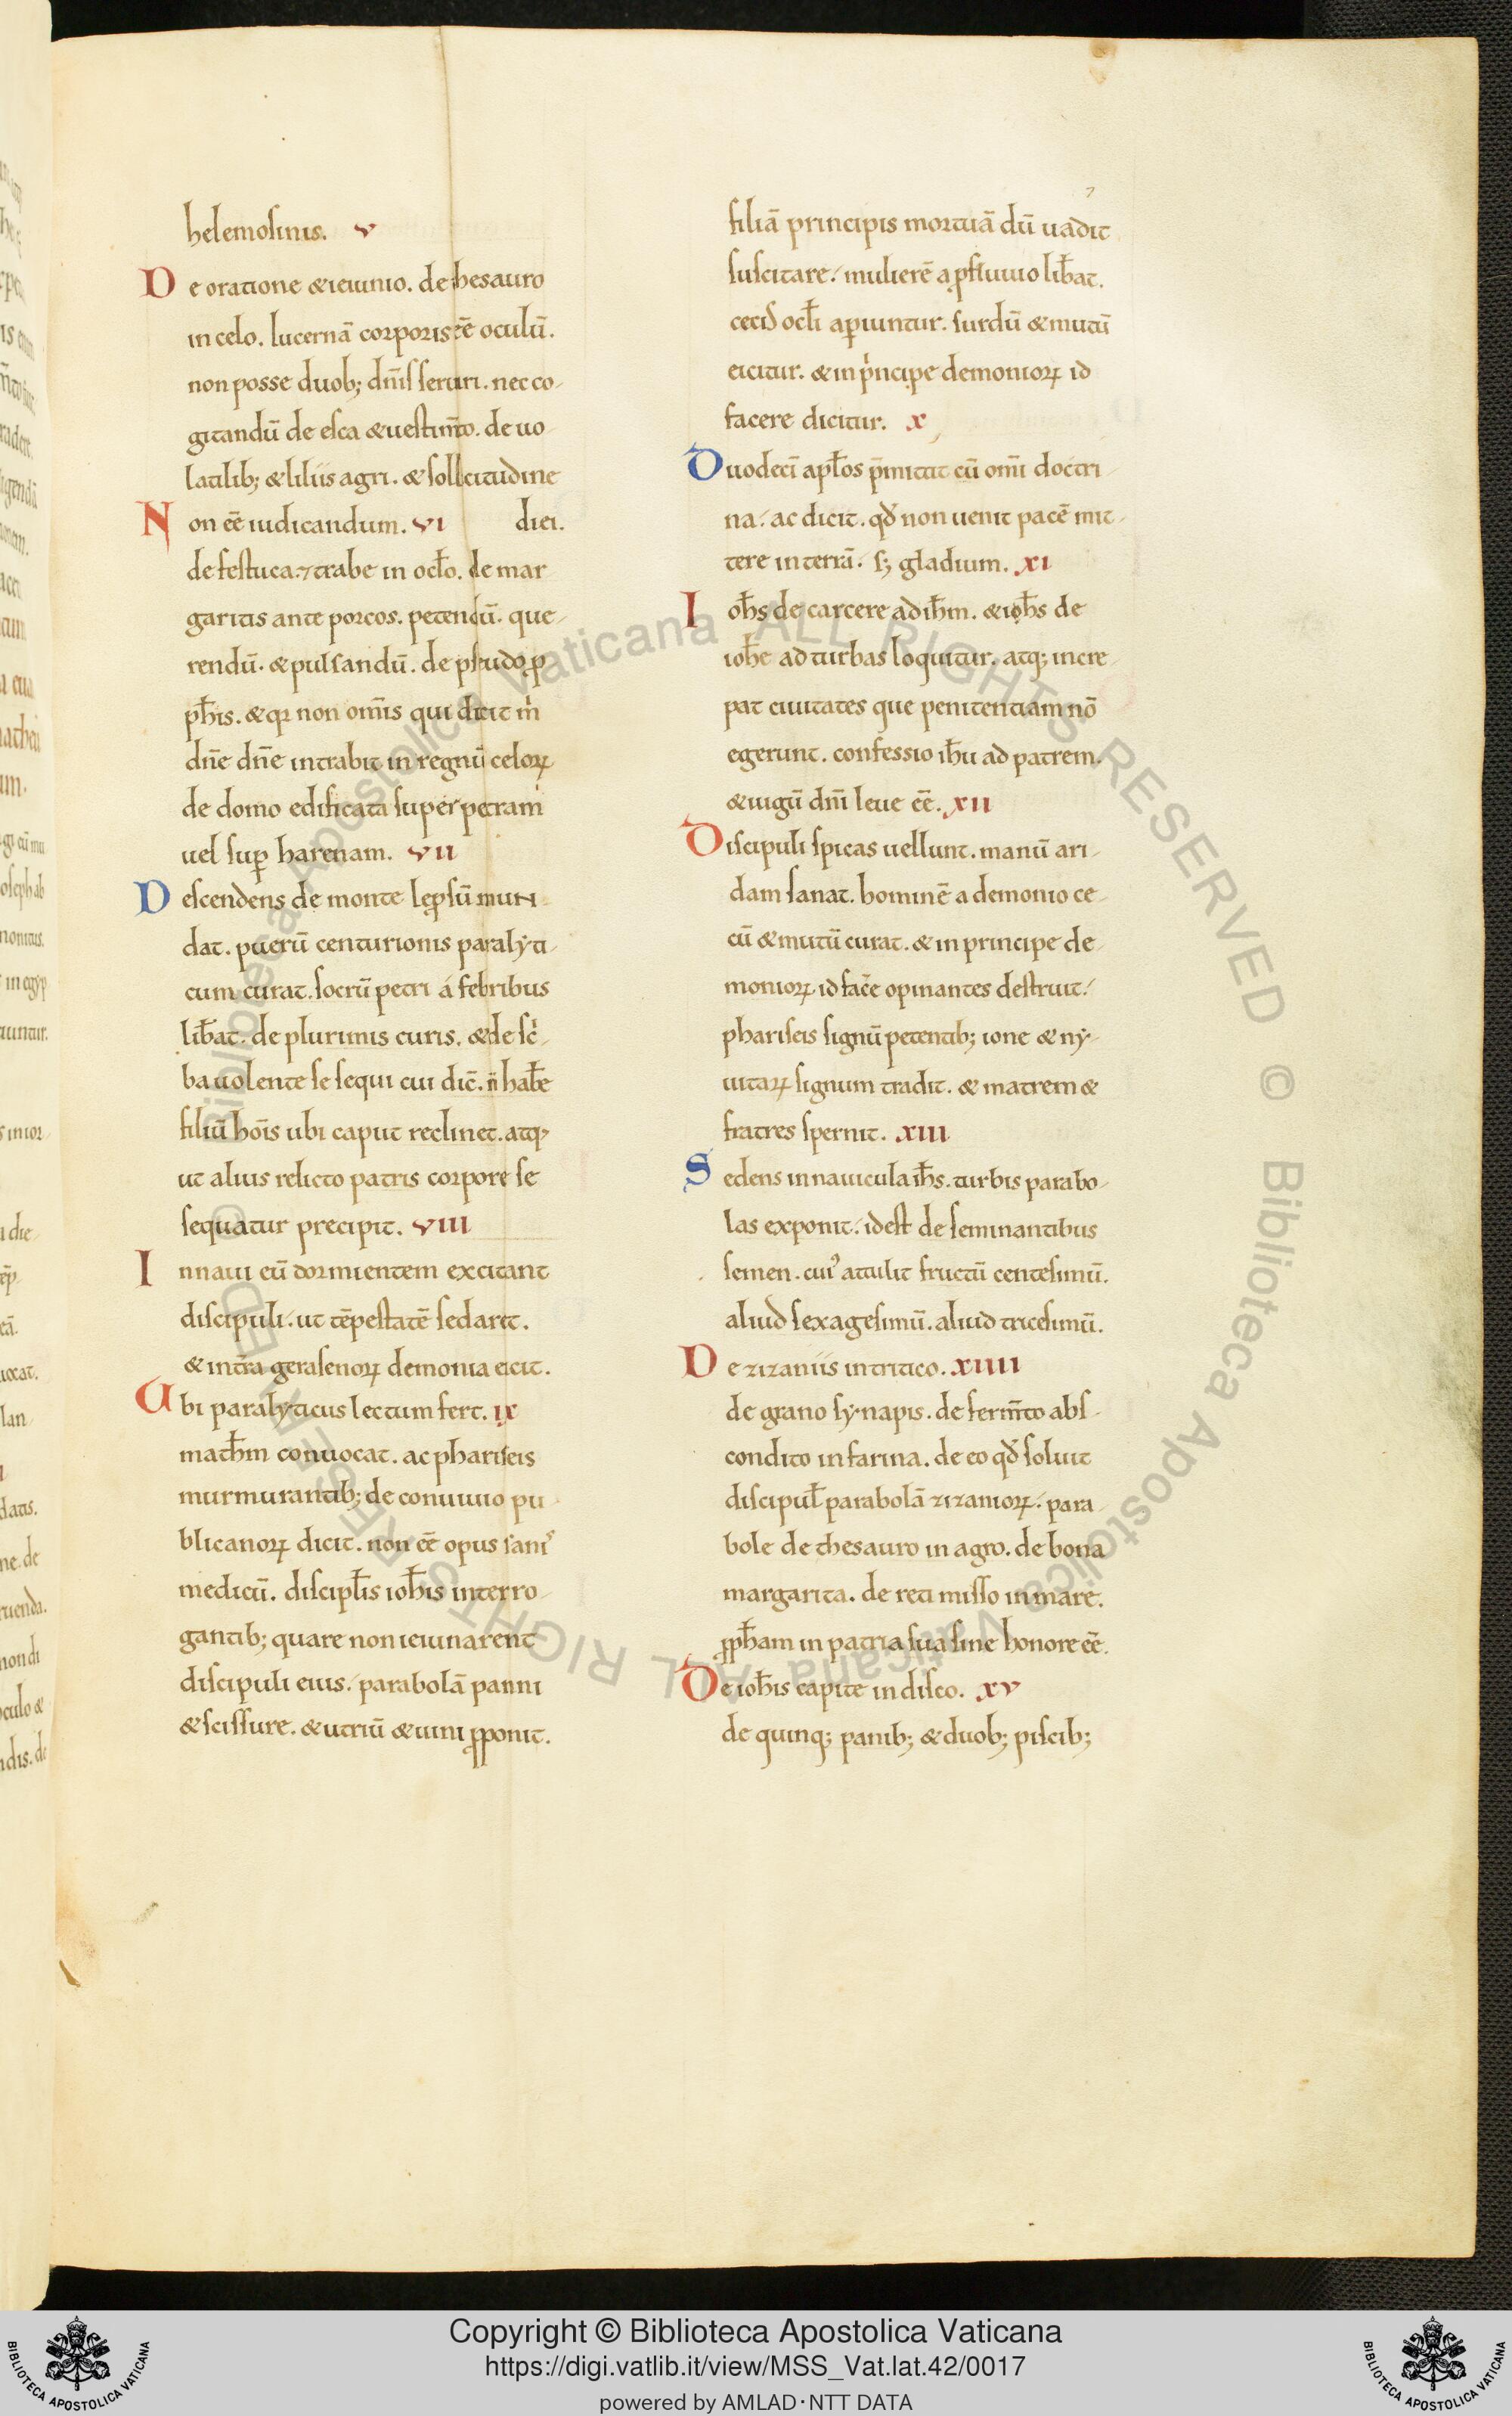 helemosinis. v
De oratione & ieiunio. de thesauro
in celo. lucernā corporis eē oculū.
non posse duob; dn̄is seruiri. nec co-
gitandū de esca & uestim̄to. de uo
latilib; & liliis agri. & sollicitudine
Non eē iudicandum. vi diei.
de festuca ⁊ trabe in ocl̄o. de mar
garitis ante porcos. petendū. que-
rendū. & pulsandū. de pseudo ꝓ
ph̄is. & qꝛ non om̄s qui dicit m̄
dn̄e dn̄e intrabit in regnū celoꝝ
de domo edificata super petram
uel suꝑ harenam. vii
Descendens de monte lep̱sū mun-
dat. puerū centurionis paralyti-
cum curat. socrū petri á febribus
lib̄at. de plurimis curis. & de sc̍-
ba uolente se sequi cui dic̄. n̄ hab̄e
filiū hōis ubi caput reclinet. atq;
ut alius relicto patris corpore se
sequatur precipit. viii
In naui eū dormientem excitant
discipuli. ut tēpestatē sedaret.
& int̄ra gerasenoꝝ demonia eicit.
Vbi paralyticus lectum fert. ix
math̄m conuocat. ac phariseis
murmurantib; de conuiuio pu
blicanoꝝ dicit. non eē opus sanis
medicū. discipl̄is ioh̄is interro-
gantib; quare non ieiunarent
discipuli eius. parabolā panni
& scissure. & utriū & uini ꝓponit.
7
filiā principis mortuā dū uadit
suscitare. mulierē a ꝓfluuio lib̄at.
cecis ocl̄i aꝑiuntur. surdū & mutū
eicitur. & in pͥncipe demonioꝝ id
facere dicitur. x
Duodeci apl̄os p̄mittit cū om̄i doctri-
na. ac dicit. qd̄ non uenit pacē mit-
tere in terrā. s; gladium. xi
Ioh̄s de carcere ad ih̄m. & ioh̄s de
ioh̄e ad turbas loquitur. atq; incre-
pat ciuitates que penitentiam nō
egerunt. confessio ih̄u ad patrem.
& iugū dn̄i leue eē. xii
Discipuli spicas uellunt. manū ari-
dam sanat. hominē a demonio ce-
cū & mutū curat. & in principe de-
monioꝝ id fac̄e opinantes destruit.
phariseis signū petentib; ione & ny-
uitaꝝ signum tradit. & matrem &
fratres spernit. xiii
Sedens in nauicula ih̄s. turbis parabo-
las exponit. id est de seminantibus
semen. cui᾽ attulit fructū centesimū.
aliud sexagesimū. aliud tricesimū.
De zizaniis in tritico. xiiii
de grano synapis. de ferm̄to abs-
condito in farina. de eo qd̄ soluit
discipul̄ parabolā zizanioꝝ. para
bole de thesauro in agro. de bona
margarita. de reti misso in mare.
ꝓph̄am in patria sua sine honore eē.
De ioh̄is capite in disco. xv
de quinq; panib; & duob; piscib;
Copyright © Biblioteca Apostolica Vaticana
https://digi.vatlib.it/view/MSS_Vat.lat.42/0017
powered by AMLAD·NTT DATA
BIBLIOTECA APOSTOLICA VATICANA
BIBLIOTECA APOSTOLICA VATICANA